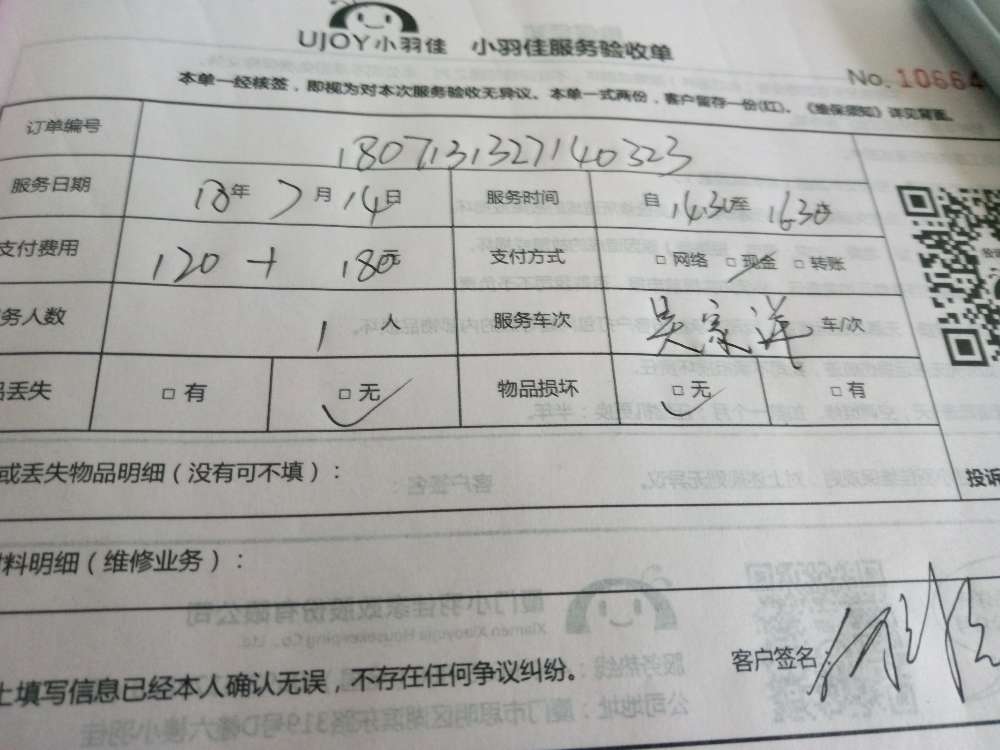 UJOY小羽佳 小羽佳服务验收单
No. 10664
本单一经核签，即视为对本次服务验收无异议。本单一式两份，客户留存一份(红)。《维保须知》详见背面。
订单编号 1807131327140323
服务日期 18年 7月 14日 服务时间 自 14:30至 16:30
支付费用 120 + 180元 支付方式 □ 网络 □ 现金 □ 转账
务人数 1 人 服务车次 吴家洋 车/次
品丢失 □ 有 □ 无 物品损坏 □ 无 □ 有
或丢失物品明细（没有可不填）：
投诉
材料明细（维修业务）：
上填写信息已经本人确认无误，不存在任何争议纠纷。
客户签名